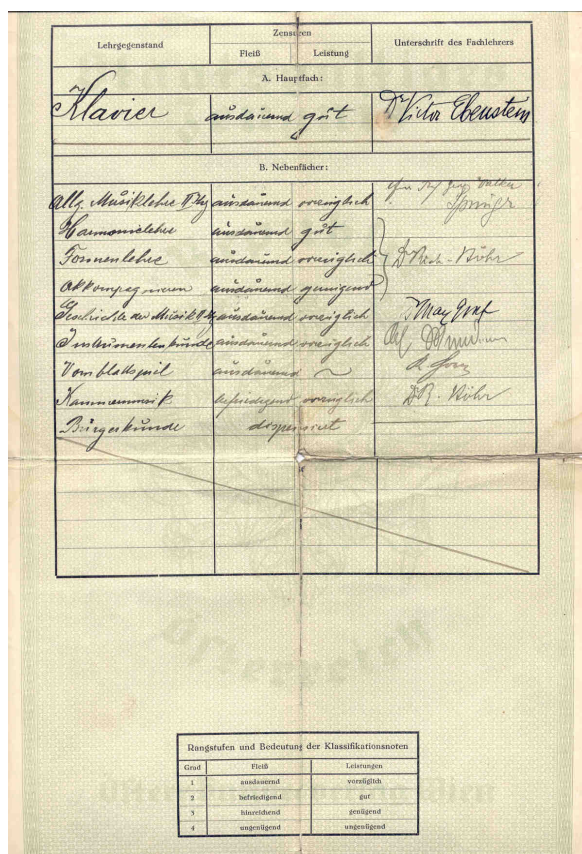 Lehrgegenstand Zensuren Unterschrift des Fachlehrers
Fleiß Leistung
A. Hauptfach:
Klavier ausdauernd gut Dr Victor Ebenstein
B. Nebenfächer:
Allg. Musiklehre ausdauernd vorzüglich
Harmonielehre ausdauernd gut
Formenlehre ausdauernd vorzüglich Stöhr
Akkompagnieren ausdauernd genügend
Geschichte der Musik ausdauernd vorzüglich Max Graf
Instrumentenkunde ausdauernd vorzüglich
Vomblattspiel ausdauernd ~
Kammermusik befriedigend vorzüglich Dr R. Stöhr
Bürgerkunde dispensiert
Österreich
Rangstufen und Bedeutung der Klassifikationsnoten
Grad Fleiß Leistungen
1 ausdauernd vorzüglich
2 befriedigend gut
3 hinreichend genügend
4 ungenügend ungenügend